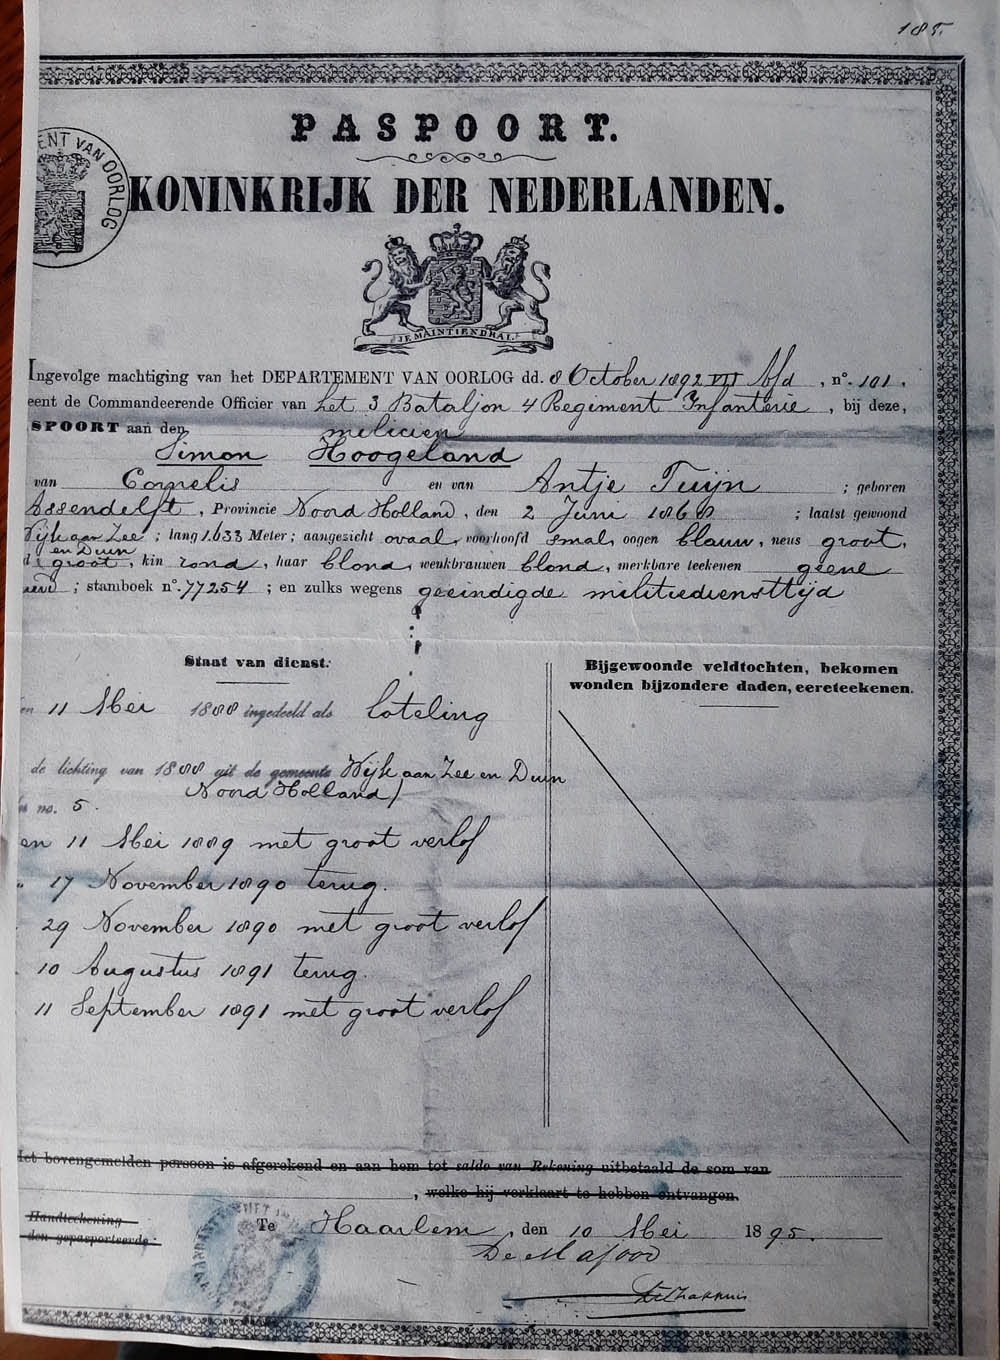 185.
PASPOORT.
ENT VAN OORLOG
KONINKRIJK DER NEDERLANDEN.
JE MAINTIENDRAI.
Ingevolge machtiging van het DEPARTEMENT VAN OORLOG dd. 8 October 1892 VII Afd, n°. 101.
eent de Commandeerende Officier van het 3 Bataljon 4 Regiment Infanterie, bij deze,
SPOORT aan den milicien
Simon Hoogeland
van Cornelis en van Antje Tuijn ; geboren
Assendelft, Provincie Noord Holland, den 2 Juni 1868 ; laatst gewoond
Wijk aan Zee ; lang 1.633 Meter; aangezicht ovaal, voorhoofd smal, oogen blauw, neus groot,
en Duin
d groot, kin rond, haar blond, wenkbrauwen blond, merkbare teekenen geene
; stamboek n°. 77254 ; en zulks wegens geeindigde militiediensttijd
Staat van dienst.
Bijgewoonde veldtochten, bekomen
wonden bijzondere daden, eereteekenen.
en 11 Mei 1888 ingedeeld als loteling
de lichting van 1888 uit de gemeente Wijk aan Zee en Duin
Noord Holland)
no. 5.
en 11 Mei 1889 met groot verlof
" 17 November 1890 terug.
29 November 1890 met groot verlof
10 Augustus 1891 terug.
11 September 1891 met groot verlof
Het bovengemelden persoon is afgerekend en aan hem tot saldo van Rekening uitbetaald de som van
, welke hij verklaart te hebben ontvangen.
Handteekening
den gepasporteerde:
Te Haarlem, den 10 Mei 1895.
De Majoor